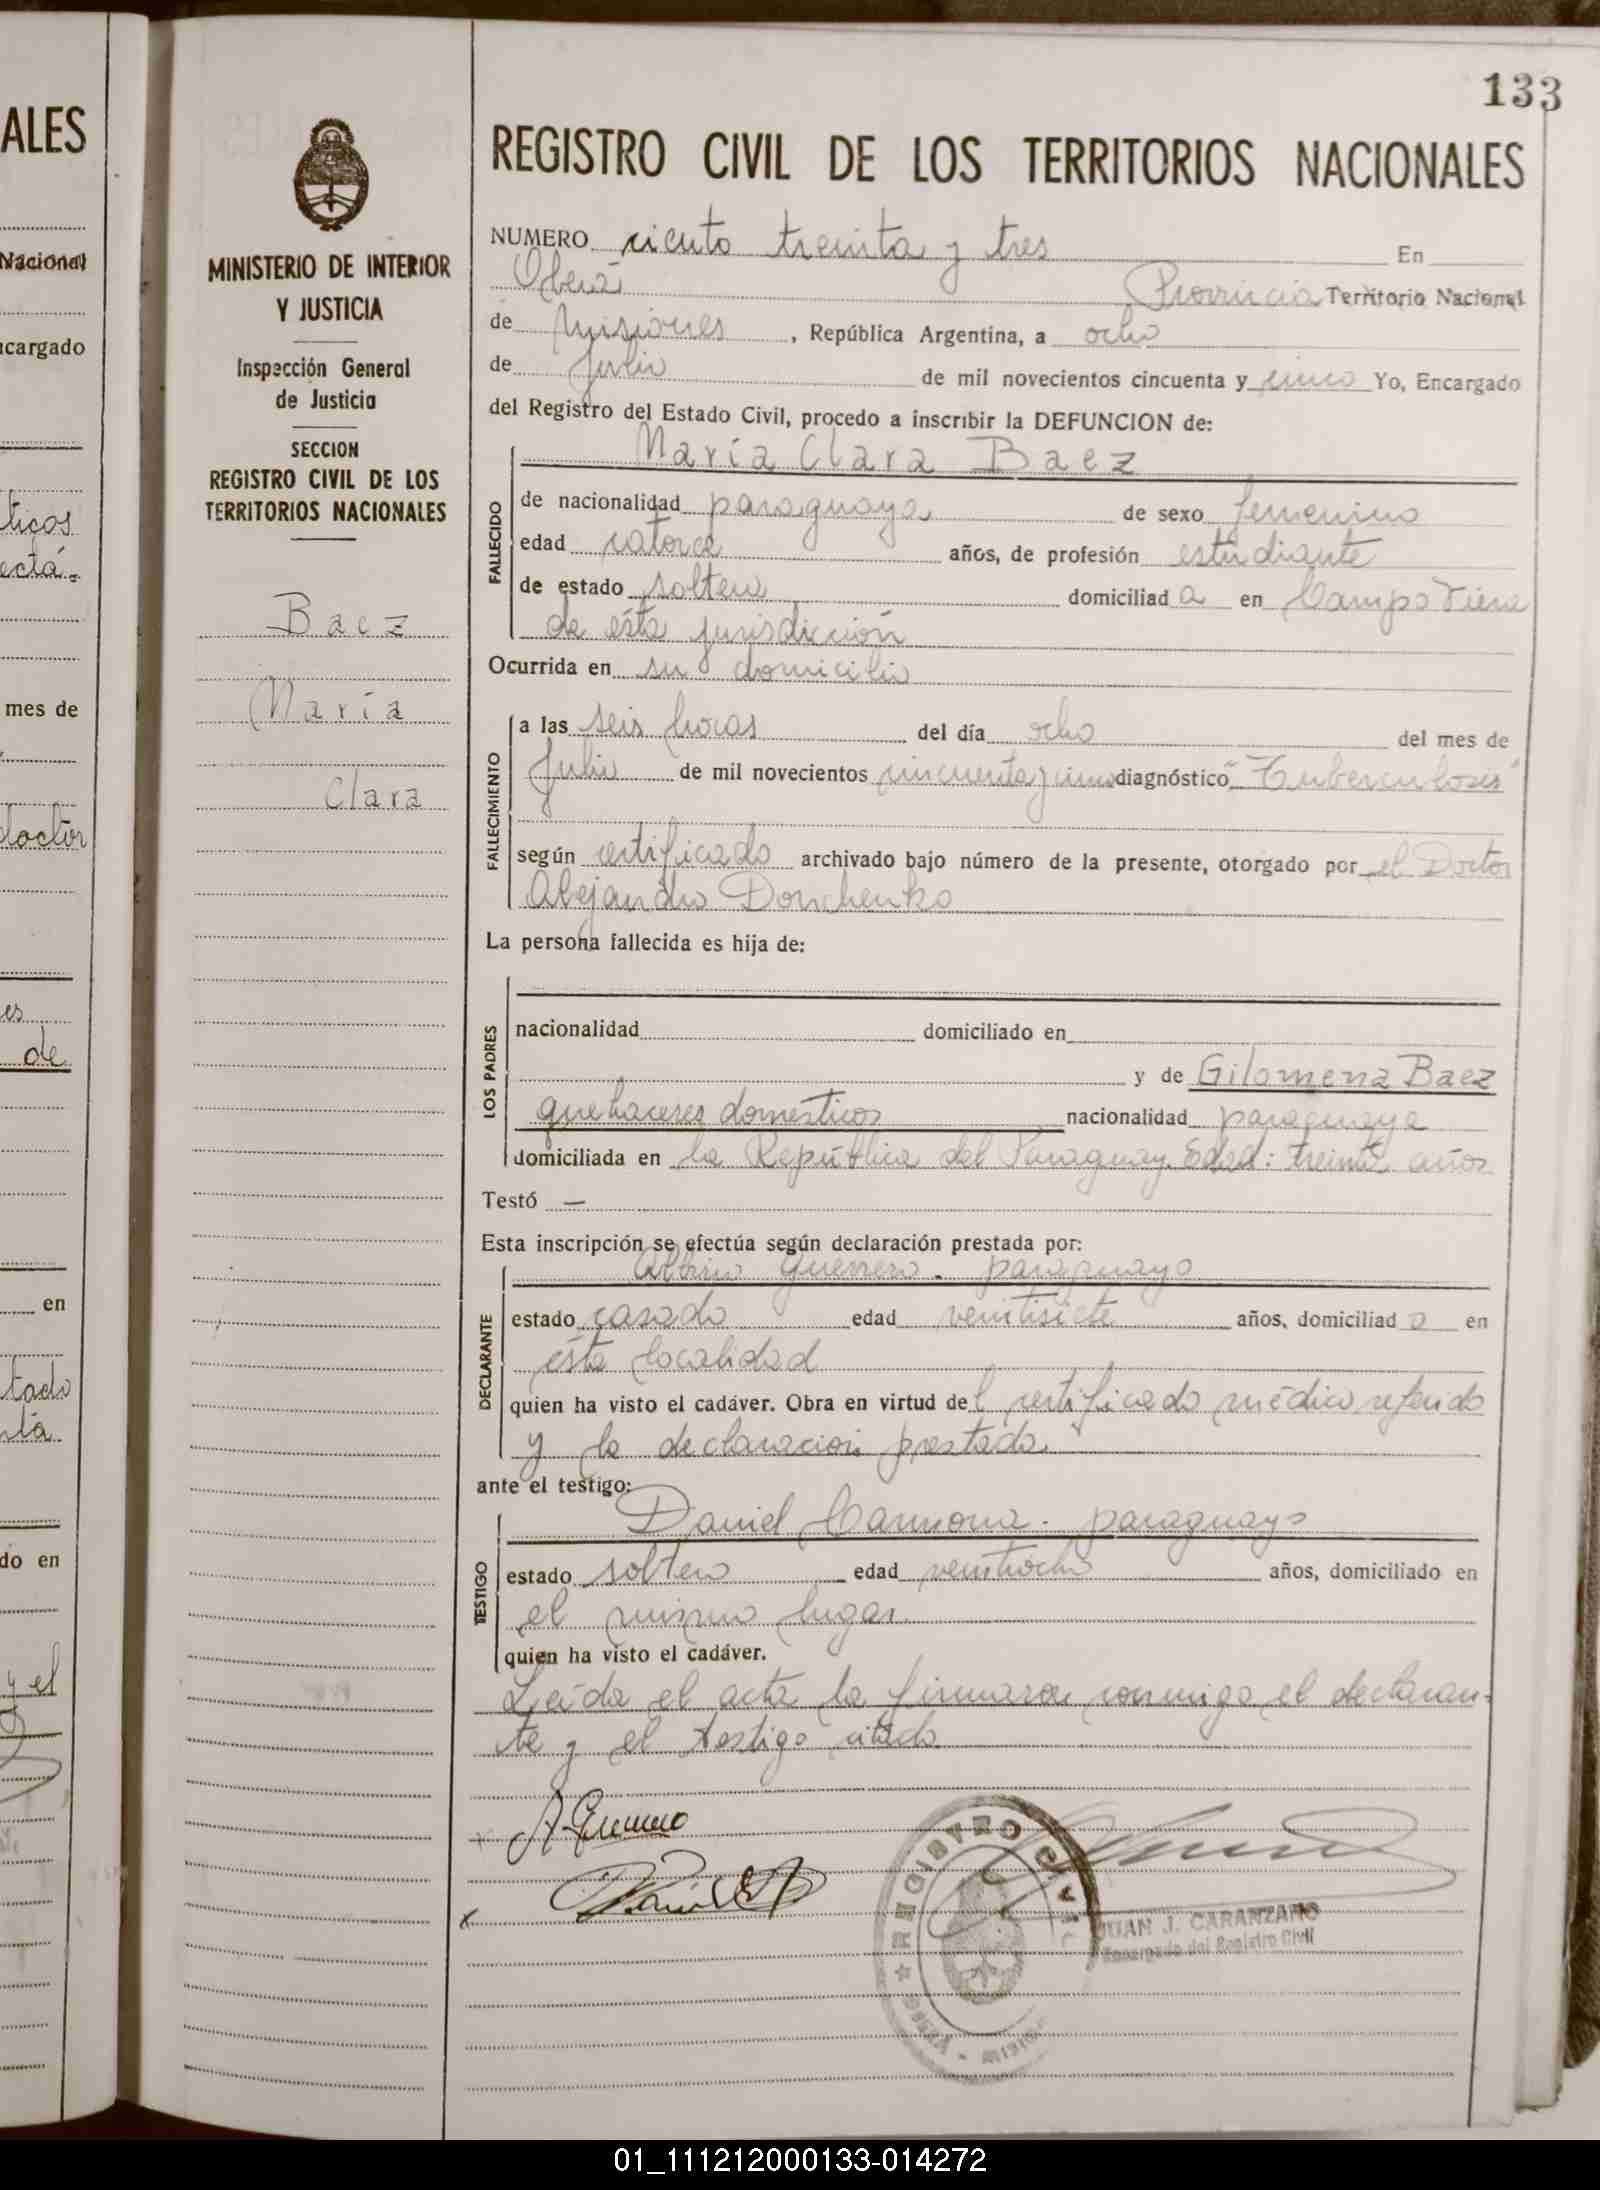 133
REGISTRO CIVIL DE LOS TERRITORIOS NACIONALES
MINISTERIO DE INTERIOR
Y JUSTICIA
Inspección General
de Justicia
SECCION
REGISTRO CIVIL DE LOS
TERRITORIOS NACIONALES
Baez
María
Clara
NUMERO ciento treinta y tres En
Oberá Provincia Territorio Nacional
de Misiones, República Argentina, a ocho
de Julio de mil novecientos cincuenta y cinco Yo, Encargado
del Registro del Estado Civil, procedo a inscribir la DEFUNCION de:
María Clara Baez
FALLECIDO
de nacionalidad paraguaya de sexo femenino
edad catorce años, de profesión estudiante
de estado soltera domiciliad a en Campo Viera
de ésta jurisdicción
Ocurrida en su domicilio
FALLECIMIENTO
a las seis horas del día ocho del mes de
Julio de mil novecientos cincuenta y cinco diagnóstico "Tuberculosis"
según certificado archivado bajo número de la presente, otorgado por el Doctor
Alejandro Donchenko
La persona fallecida es hija de:
LOS PADRES
nacionalidad domiciliado en
y de Gilomena Baez
quehaceres domésticos nacionalidad paraguaya
domiciliada en la República del Paraguay. Edad: treinta años
Testó —
Esta inscripción se efectúa según declaración prestada por:
DECLARANTE
Albino Guerrero. paraguayo
estado casado edad veintisiete años, domiciliad o en
ésta localidad
quien ha visto el cadáver. Obra en virtud del certificado médico referido
y la declaración prestada.
ante el testigo:
TESTIGO
Daniel Carmona. paraguayo
estado soltero edad veintiocho años, domiciliado en
el mismo lugar.
quien ha visto el cadáver.
Leída el acta la firmaron conmigo el declaran-
te y el testigo citado.
A. Guerrero
REGISTRO CIVIL
OBERA - MISIONES
JUAN J. CARANZANO
Encargado del Registro Civil
ALES
Nacional
ncargado
ticos
ectá.
mes de
doctor
es
de
en
tado
nta
do en
y el
01_111212000133-014272